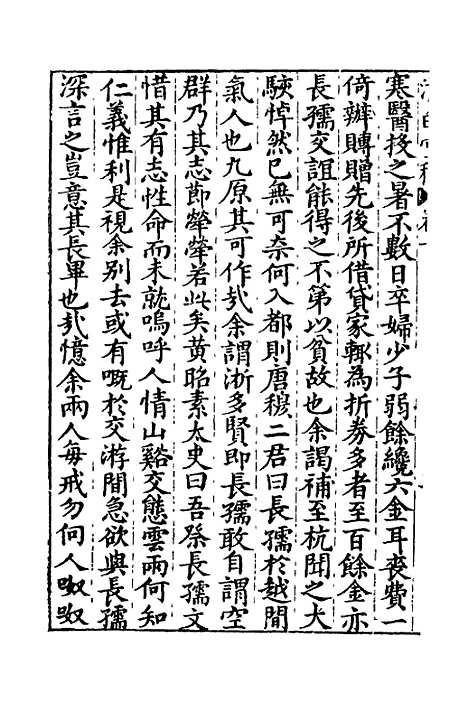 寒醫投之暑不數日卒婦少子弱餘纔六金耳喪費一
倚辦賻贈先後所借貸家輙為折券多者至百餘金亦
長孺交誼能得之不第以貧故也余謁補至杭聞之大
駭悼然已無可奈何入都則唐穉二君曰長孺於越間
氣人也九原其可作㢤余謂浙多賢即長孺敢自謂空
群乃其志節犖犖若此矣黄昭素太史曰吾祭長孺文
惜其有志性命而未就嗚呼人情山谿交態雲雨何知
仁義惟利是視余别去或有嘅於交游間急欲與長孺
深言之豈意其長畢也㢤憶余兩人每戒勿向人呶呶